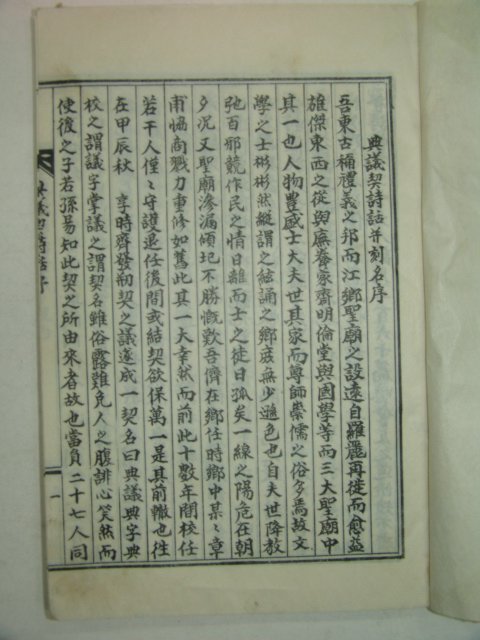 典議契詩話并刻名序
吾東古稱禮義之邦而江鄉聖廟之設遠自羅麗再徙而愈益
雄傑東西之從與廡養家齋明倫堂與國學等而三大聖廟中
其一也人物豊盛士大夫世其家而尊師崇儒之俗多焉故文
學之士彬彬然縱謂之絃誦之鄉庶無少遜色也自夫世降教
弛百邪競作民之情日離而士之徒日孤矣一線之陽危在朝
夕況又聖廟滲漏傾圯不勝慨歎吾儕在鄉任時鄉中某〻章
甫恊商戮力重修如舊此其一大幸然而前此十數年間校任
若干人僅〻守護退任後間或結契欲保萬一是其前轍也徃
在甲辰秋 享時齊發刱契之議遂成一契名曰典議典字典
校之謂議字掌議之謂契名雖俗露難免人之腹誹心笑然而
使後之子若孫易知此契之所由來者故也當員二十七人同
典義契詩話序
一